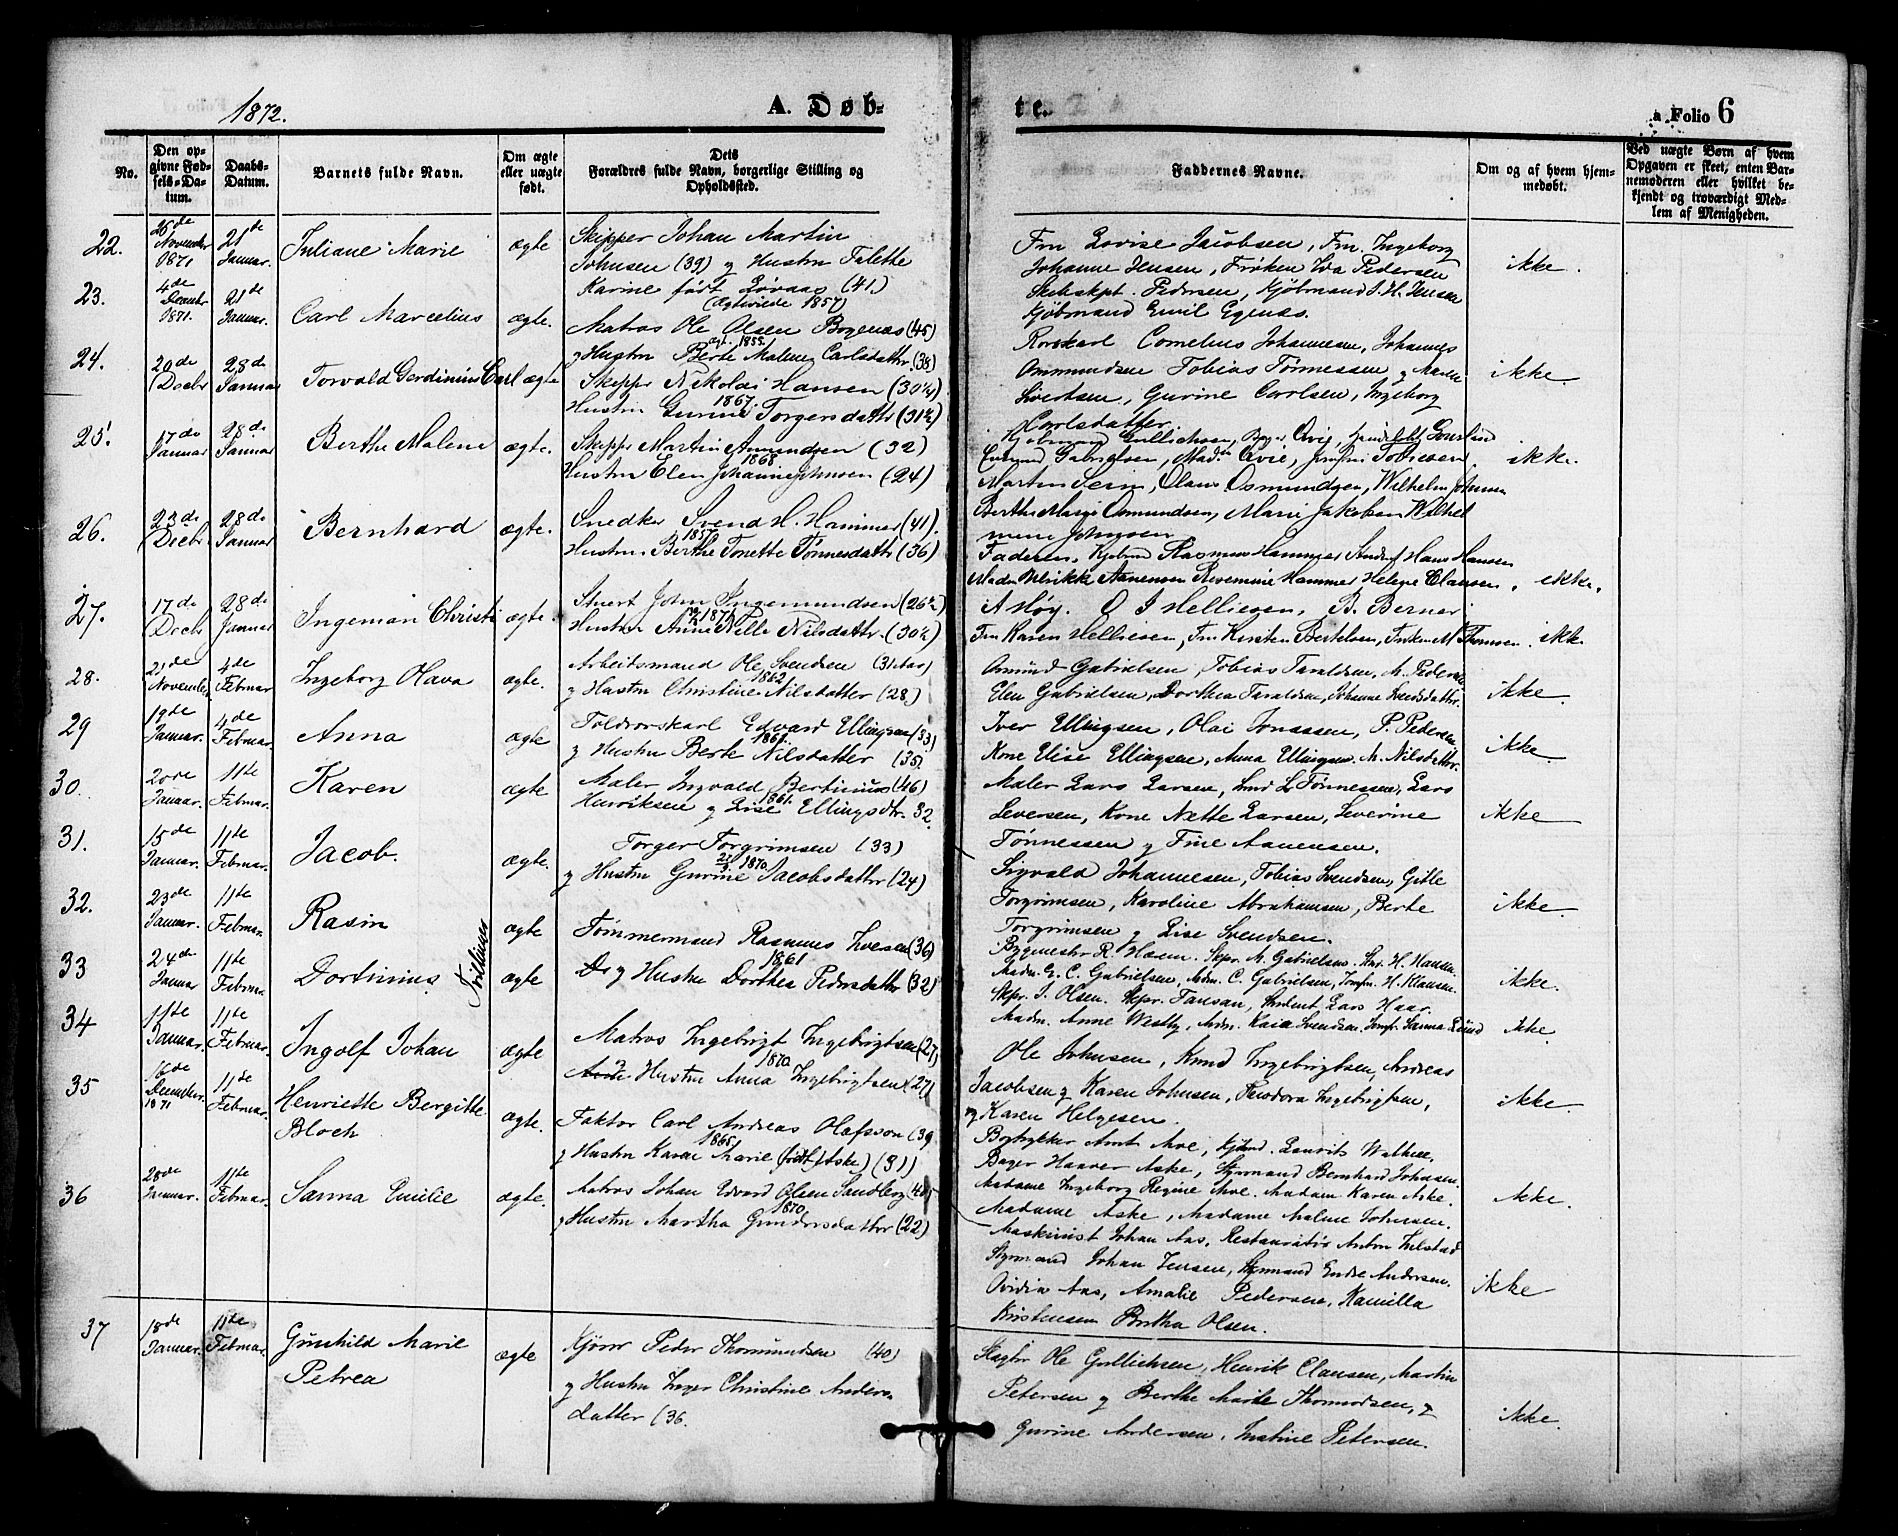 1872.
A. Døb-
te.
a Folio 6
No.
Den op-
givne Fød-
sels-Da-
tum.
Daabs-
Datum.
Barnets fulde Navn.
Om ægte
eller uægte
født.
Dets
Forældres fulde Navn, borgerlige Stilling og
Opholdssted.
Faddernes Navne.
Om og af hvem hjem-
medøbt.
Ved uægte Børn af hvem
Opgaven er skeet, enten Bar-
nemoderen eller hvilket be-
kjendt og troværdigt Med-
lem af Menigheden.
22.
November
1871
21de
Januar.
Juliane Marie
ægte
Skipper Johan Martin
Johnsen (39) og Hustru Talette
Karine født Løvaas (41.)
(Ægteviede 1857)
Fru Lovise Jacobsen, Fru Ingeborg
Johanne Jensen, Frøken Pedersen
Pedersen, Kjøbmand J. H. Jensen
Kjøbmand Emil Egenæs.
ikke.
23.
4de
Decembr
1871.
21de
Januar.
Carl Marcelius
ægte.
Matros Ole Olsen Bogenæs (45)
1855.
og Hustru Berte Malene Carlsdattr (38)
Rorskarl Cornelius Johannesen, Johannes
Ommundsen Tobias Tønnessen og Maren
Sivertsen, Gurine Carlsen, Ingeborg
Carlsdatter.
ikke.
24.
20de
Decbr
28de
Januar
Torvald Gerdinius Carl
ægte
Skipper Nikolai Hansen (30½)
1867.
Hustru Gurine Torgersdattr (31½)
Gabrielsen, Tobiesen
ikke.
25.
17de
Januar
28de
Januar
Berthe Malene
ægte.
Skipper Martin Amundsen (32)
1868
Hustru Elen Johanne Johnsen (24)
Martin Olaus Osmundsen, Wilhelm Johnsen
Berthe Marie Osmundsen, Marie Jakobsen Wilhel
mine Johnsen
26.
23de
Decbr
28de
Januar
Bernhard
ægte.
Snedker Svend H. Hammer (41).
1857
Hustru Berthe Tonette Tønnesdattr (36)
Faderen, Rasmus Hammer Hans Hansen
Madm Ulrikke Aanensen Hammer Helene Clausen.
ikke.
27.
17de
Decbr
28de
Januar
Ingeman Christi
ægte.
John Ingemundsen (26½)
1871
Hustru Anne Nilsdattr. (30½)
A Høy. O J Helliesen, B. Berner
Fru Karen Helliesen, Fru Kirsten Bertelsen, Thomsen.
ikke
28.
21de
November
4de
Februar
Ingeborg Olava
ægte.
Arbeidsmand Ole Svendsen (31 Aar)
1862
og Hustru Christine Nilsdatter (28)
Amund Gabrielsen, Tobias Taraldsen, M. Pedersen
Elen Gabrielsen, Dorthea Taraldsen, Johanne Svendsdattr.
ikke
29
19de
Januar.
4de
Februar.
Anna
ægte
Toldrorskarl Edvard Ellingsen (33)
1861.
og Hustru Berte Nilsdatter (35)
Iver Ellingsen, Olai Jonassen, P. Pedersen
Kone Elise Ellingsen, Anna Ellingsen. M. Nilsdattr.
ikke
30.
20de
Januar.
11te
Februar.
Karen
ægte
Maler Ingvald Bertinius (46)
1861.
Henriksen og Lise Ellingsdtr. 32.
Maler Lars Larsen, L Tønnessen, Lars
Seversen, Kone Nette Larsen, Severine
Tønnessen og Fine Aanensen.
ikke
31.
15de
Januar.
11te
Februar.
Jacob.
ægte.
Torger Torgrimsen (33)
1870.
og Hustru Gurine Jacobsdattr (24)
Sigvald Johannesen, Tobias Svendsen, Gitle
Torgrimsen, Karoline Abrahamsen, Berte
Torgrimsen og Lise Svendsen.
ikke.
32.
23de
Januar.
11te
Februar.
Rasin
Tvillinger
ægte
Tømmermand Rasmus Iversen (36)
1861
og Hustru Dorthea Pedersdattr (32)
R. Hosen. Skpr. M. Gabrielsen. H. Hansen.
Madm. E. C. Gabrielsen, Mdm. C. Gabrielsen, Jomfru. H. Klausen.
ikke.
33
24de
Januar
11te
Februar.
Dortinius
ægte
Skpr. J. Olsen. Skpr. Tansan, Lars Haar.
Madm. Anne Westby, Mdm. Kaia Svendsen. Jomfr. Sanna Lund
ikke.
34
11te
Januar.
11te
Februar.
Ingolf Johan
ægte
Matros Ingebrigt Ingebrigtsen (27)
1870.
Hustru Anna Ingebrigtsen (27)
Ole Johnsen, Knud Ingebrigtsen, Andreas
Jacobsen og Karen Johnsen, Theodora Ingebrigtsen,
og Karen Helgesen.
ikke.
35
16de
December.
1871
11te
Februar.
Henriette Bergitte
Bloch
ægte.
Faktor Carl Andreas Olafsson (39
1865
og Hustru Karen Marie (født Aske) (31)
Bogtrykker Arnt Ave, Lauritz Walhee.
Bager Haaver Aske, Styrmand Bernhard Johnsen.
Madame Ingeborg Regine Ave. Madam Karen Aske.
Madame Aske, Madame Malene Johnsen.
ikke.
36
28de
Januar.
11te
Februar.
Sanna Emilie
ægte.
Matros Johan Edvard Olsen Sandberg
1870.
og Hustru Martha Gundersdattr (22)
Maskinist Johan Aas, Restauratør Anton Indstad
Styrmand Johan Jensen, Styrmand Endre Andersen.
Ovidia Aas, Amalie Pedersen, Kamilla
Kristensen Bertha Olsen.
ikke
37
18de
Januar.
11te
Februar.
Gunhild Marie
Petrea
ægte
Kjører Peder Thormundsen (40)
og Hustru Inger Christine Anders-
datter (36.
Slagter Ole Gullichsen, Henrik Clausen, Martin
Petersen og Berthe Marie Thormodsen, og
Gurine Andersen, Justine Petersen.
ikke.